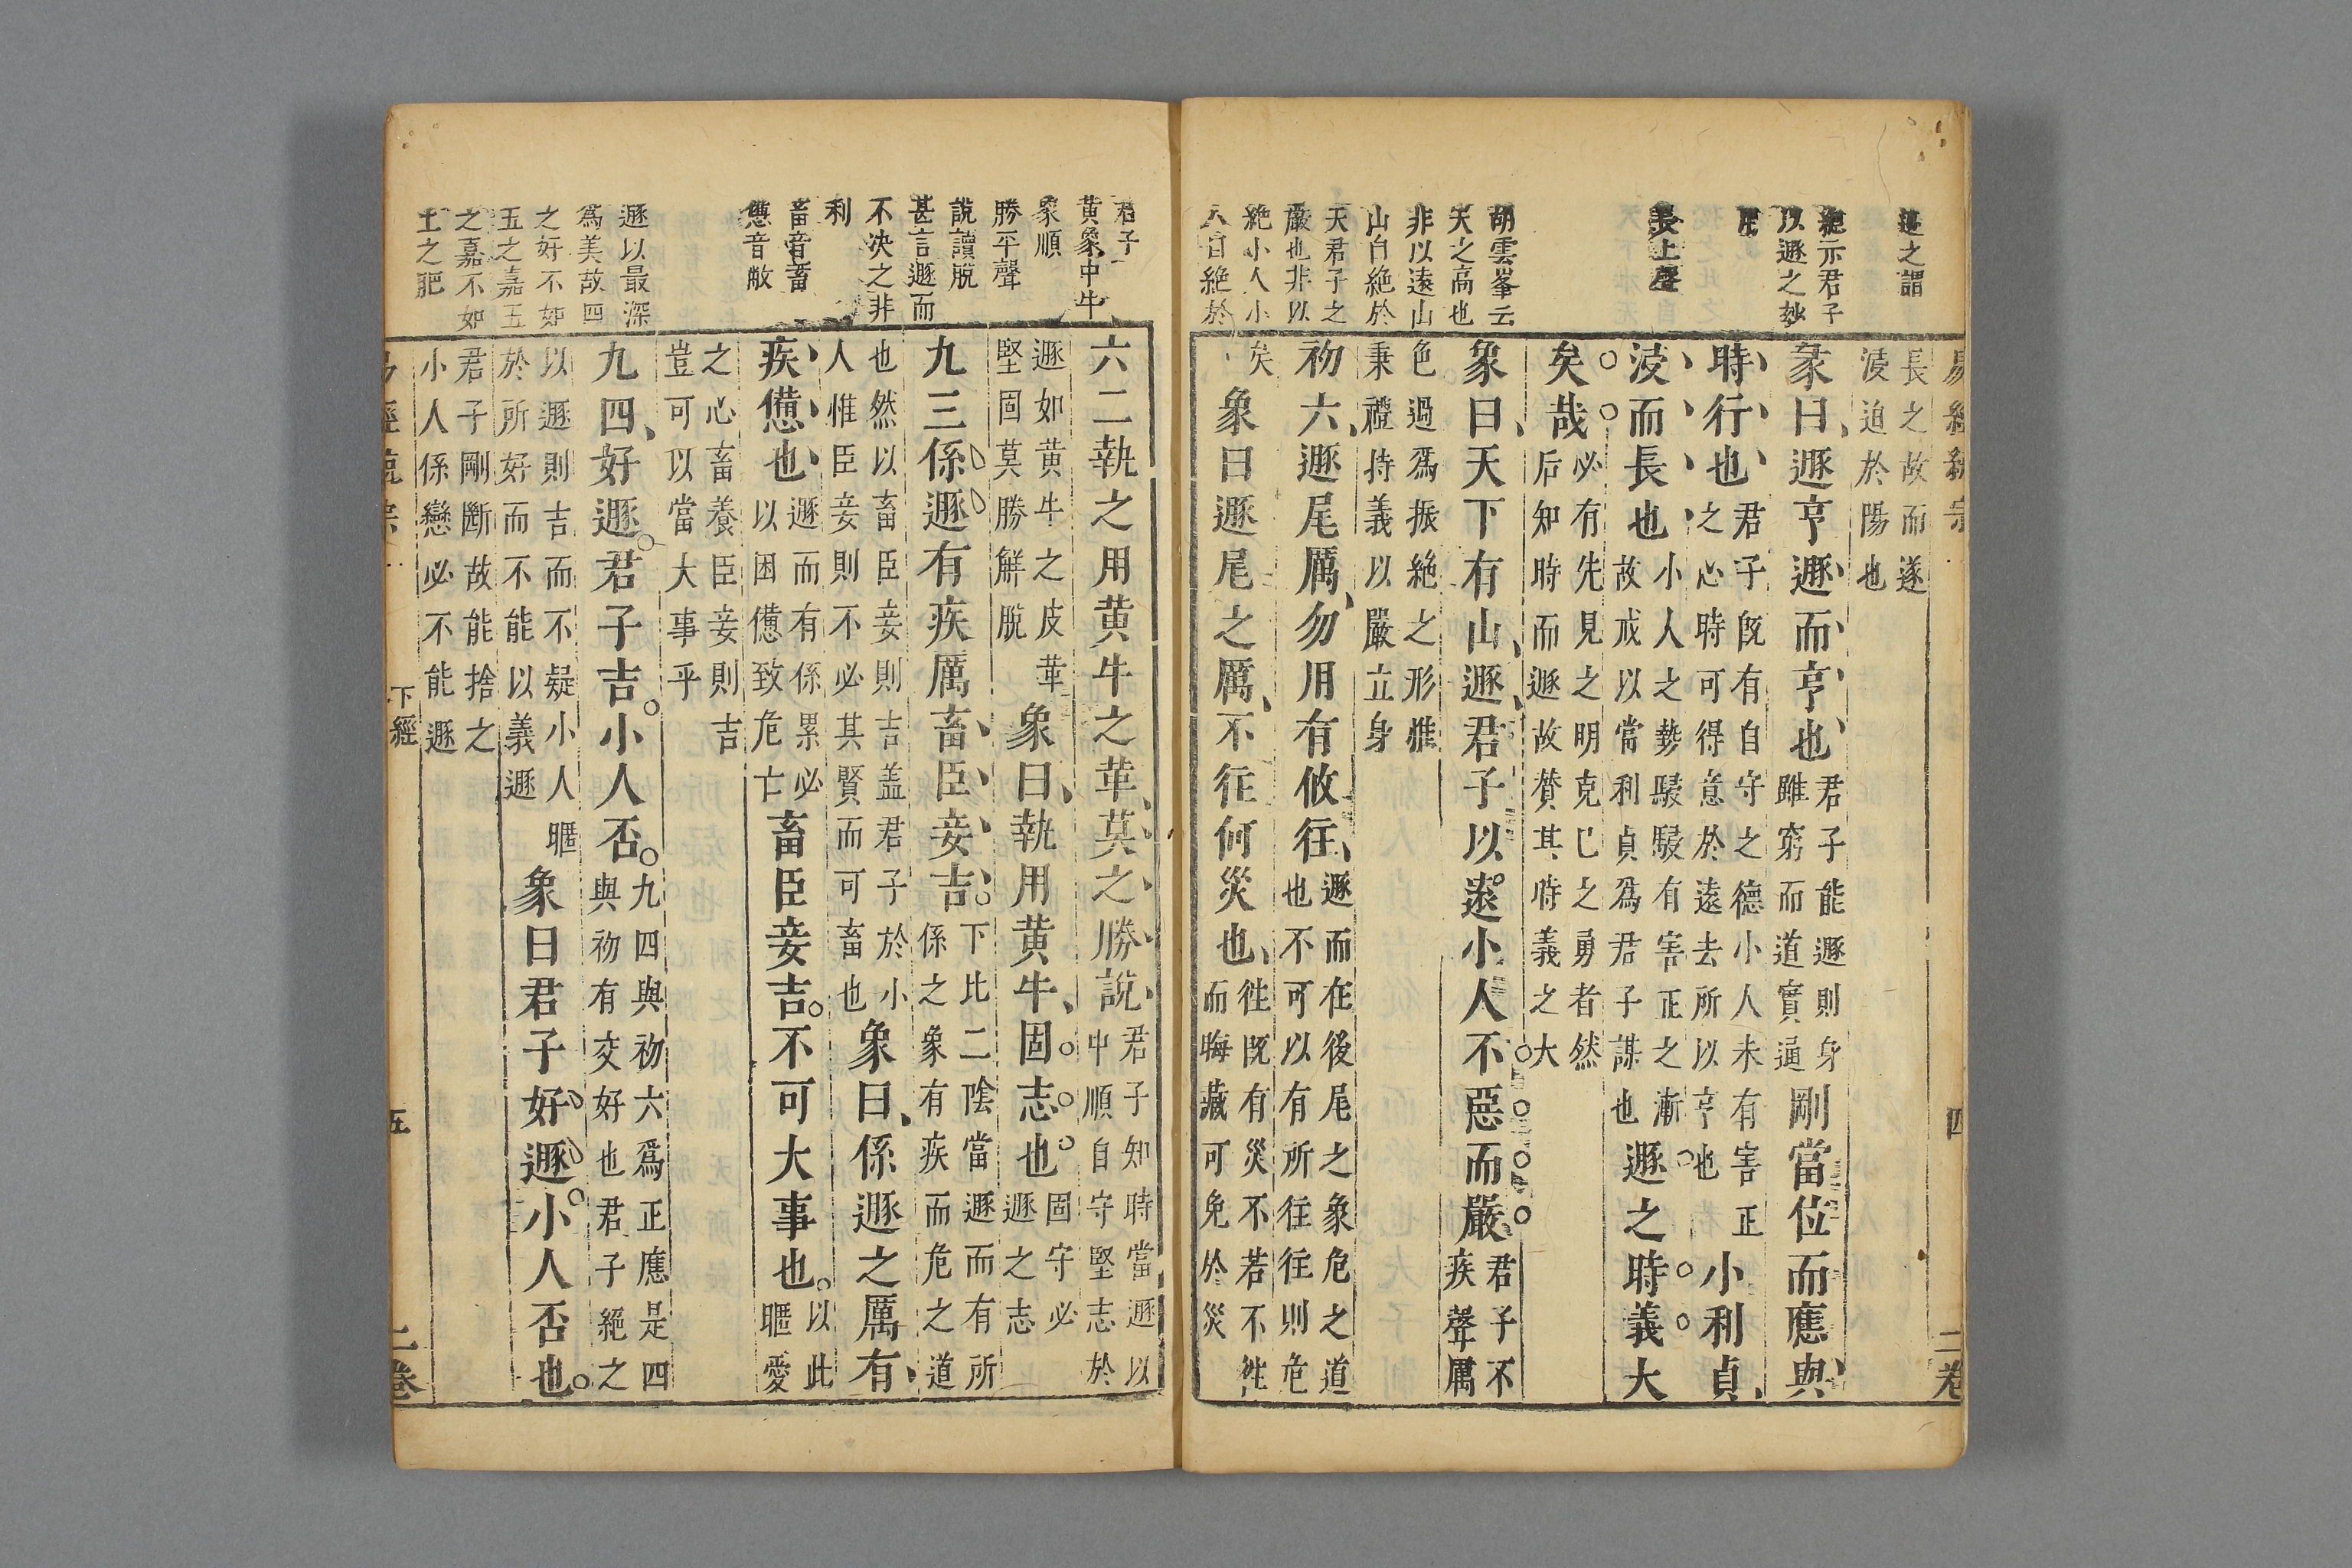 遯之謂
絶示君子
以遯之妙
用
長上聲
胡雲峯云
天之高也
非以遠山
山自絶於
天君子之
嚴也非以
絶小人小
人自絶於
長之故而遂
浸迫於陽也
彖曰遯亨遯而亨也君子能遯則身雖窮而道實通剛當位而應與
時行也君子旣有自守之德小人未有害正之心時可得意於遠去所以亨也小利貞
浸而長也小人之勢駸駸有害正之漸故戒以當利貞爲君子謀也遯之時義大
矣哉必有先見之明克己之勇者然后知時而遯故贊其時義之大
象曰天下有山遯君子以遠小人不惡而嚴君子不疾聲厲
色過爲振絶之形惟秉禮持義以嚴立身
初六遯尾厲勿用有攸往遯而在後尾之象危之道也不可以有所往往則危
矣象曰遯尾之厲不往何災也徃旣有災不若不徃而晦藏可免於災
易經
四
二卷
君子
黃象中牛
象順
勝平聲
說讀脫
甚言遯而
不決之非
利
畜音蓄
憊音敝
遯以最深
爲美故四
之好不如
五之嘉五
之嘉不如
上之肥
六二執之用黃牛之革莫之勝說君子知時當遯以中順自守堅志於
遯如黃牛之皮革堅固莫勝解脫象曰執用黃牛固志也固守必遯之志
九三係遯有疾厲畜臣妾吉下比二陰當遯而有所係之象有疾而危之道
也然以畜臣妾則吉盖君子於小人惟臣妾則不必其賢而可畜也象曰係遯之厲有
疾憊也遯而有係累必以困憊致危亡畜臣妾吉不可大事也以此暱愛
之心畜養臣妾則吉豈可以當大事乎
九四好遯君子吉小人否九四與初六爲正應是四與初有交好也君子絶之
以遯則吉而不疑小人暱於所好而不能以義遯象曰君子好遯小人否也
君子剛斷故能捨之小人係戀必不能遯
下經
五
二卷